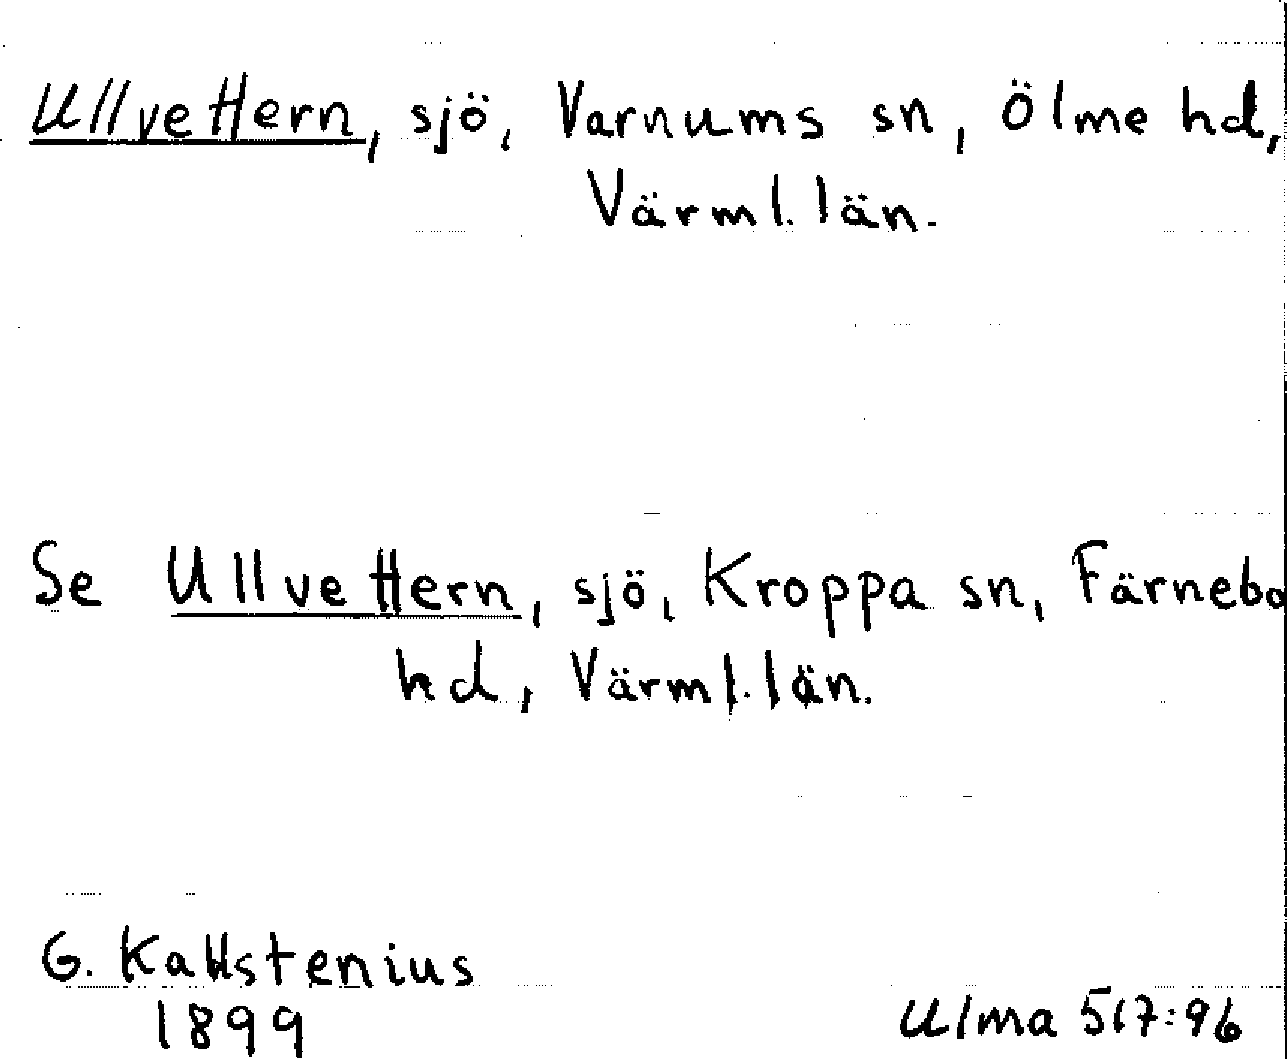 Ullvettern, sjö, Varnums sn, Ölme hd,
Värml. län.
Se Ullvettern, sjö, Kroppa sn, Färnebo
hd, Värml. län.
G. Kallstenius
1899
Ulma 517:96